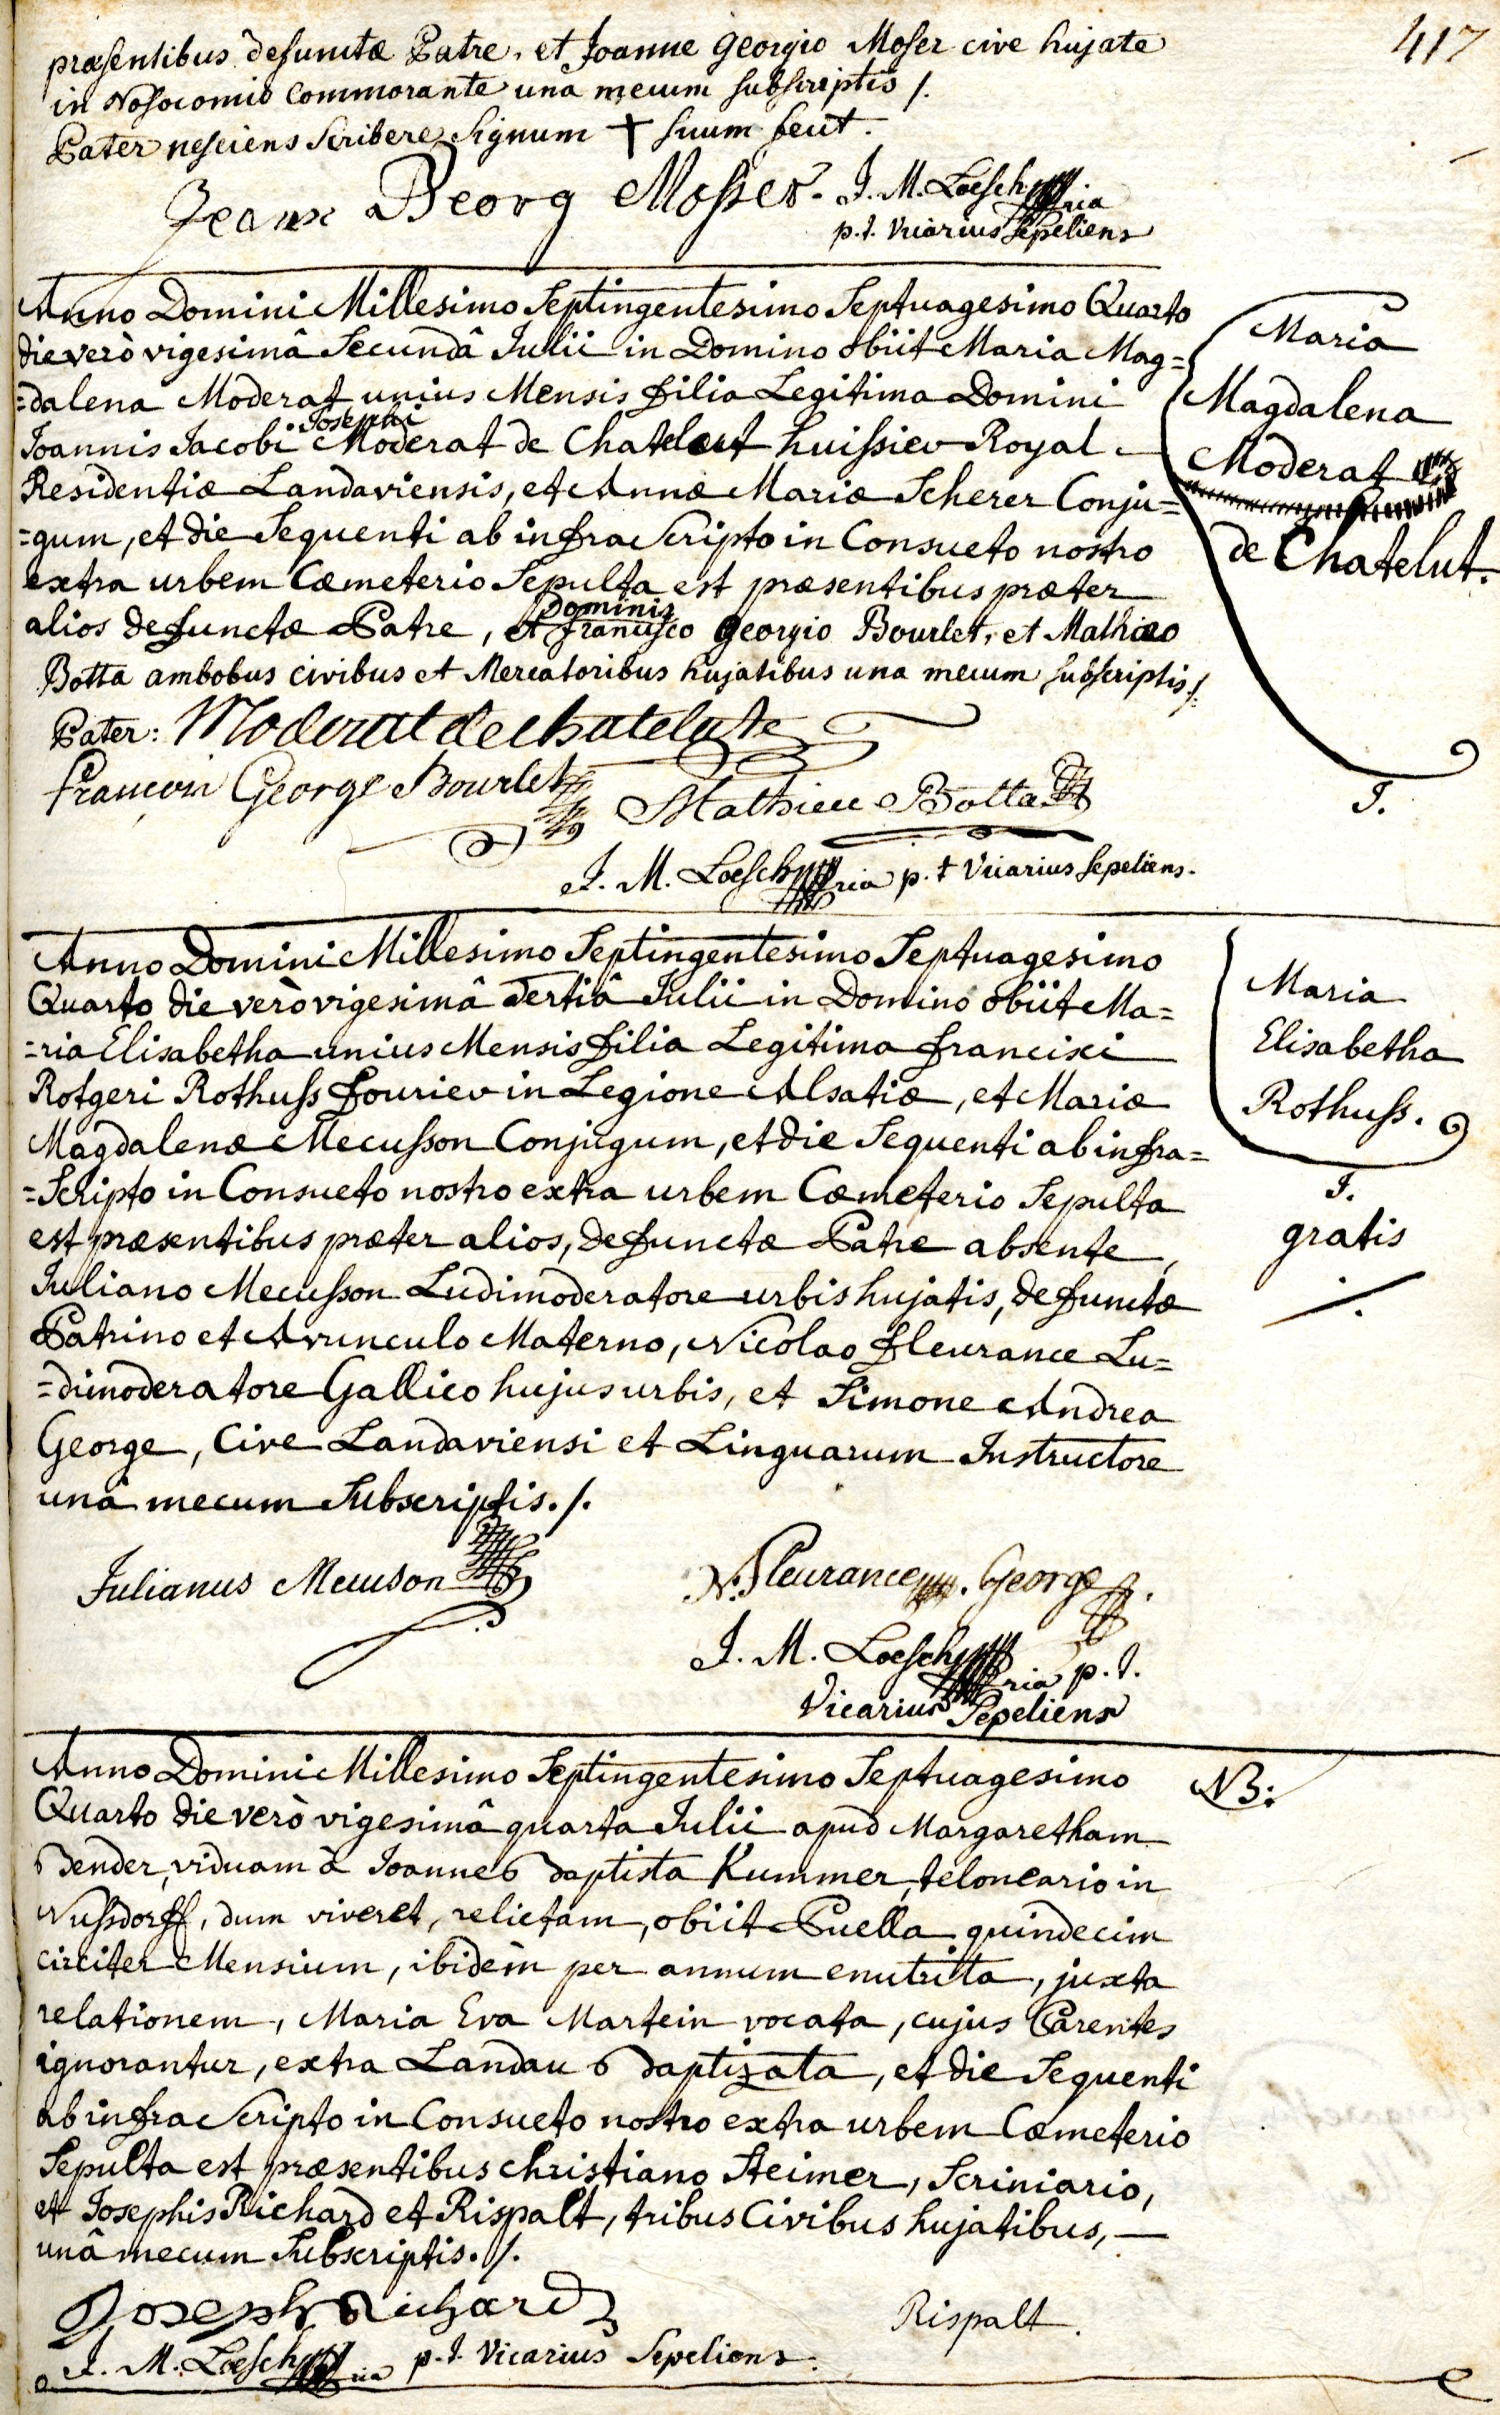 417
præsentibus defunctæ Patre, et Joanne Georgio Moser cive hujate
in Nosocomio commorante unà mecum subscriptis ./.
Pater nesciens scribere signum † suum fecit.
Georg Mosser. J. M. Loesch
p.t. Vicarius Sepeliens
Anno Domini Millesimo Septingentesimo Septuagesimo Quarto
die verò vigesimâ Secundâ Julii in Domino obiit Maria Mag=
=dalena Moderat unius Mensis filia Legitima Domini
Josephi
Joannis Jacobi Moderat de Chatelut huissier Royal
Residentiæ Landaviensis, et Annæ Mariæ Scherer Conju=
=gum, et die Sequenti ab infra Scripto in Consueto nostro
extra urbem Cæmeterio Sepulta est præsentibus præter
Dominis
alios defunctæ Patre, et francisco Georgio Bourlet, et Mathiæo
Botta ambobus civibus et Mercatoribus hujatibus una mecum subscriptis ./.
Pater: Moderat de chatelute
François George Bourlet Mathieu Botta
J. M. Loesch p.t Vicarius Sepeliens.
Maria
Magdalena
Moderat
de Chatelut.
J.
Anno Domini Millesimo Septingentesimo Septuagesimo
Quarto die verò vigesimâ Tertiâ Julii in Domino obiit Ma=
=ria Elisabetha unius Mensis filia Legitima francisci
Rotgeri Rothuss fourier in Legione Alsatiæ, et Mariæ
Magdalenæ Mecusson Conjugum, et die Sequenti ab infra=
=Scripto in Consueto nostro extra urbem Cæmeterio Sepulta
est præsentibus præter alios, defunctæ Patre absente,
Juliano Mecusson Ludimoderatore urbis hujatis, defunctæ
Patrino et Avunculo Materno, Nicolao fleurance Lu=
=dimoderatore Gallico hujus urbis, et Simone Andrea
George, Cive Landaviensi et Linguarum Instructore
unâ mecum Subscriptis ./.
Julianus Mecuson N. fleurance. George.
J. M. Loesch p.t.
Vicarius Sepeliens
Maria
Elisabetha
Rothuss.
J.
gratis
./.
Anno Domini Millesimo Septingentesimo Septuagesimo
Quarto die verò vigesimâ quarta Julii apud Margaretham
Bender, viduam à Joanne Baptista Kummer, telonario in
Nussdorff, dum viveret, relictam, obiit Puella quindecim
circiter Mensium, ibidem per annum enutrita, juxta
relationem, Maria Eva Martein vocata, cujus Parentes
ignorantur, extra Landau Baptizata, et die Sequenti
ab infra Scripto in Consueto nostro extra urbem Cæmeterio
Sepulta est præsentibus christiano Steimer, Scriniario,
et Josephis Richard et Rispalt, tribus Civibus hujatibus, —
unâ mecum Subscriptis ./.
Joseph Richard Rispalt.
J. M. Loesch p.t. Vicarius Sepeliens.
NB: